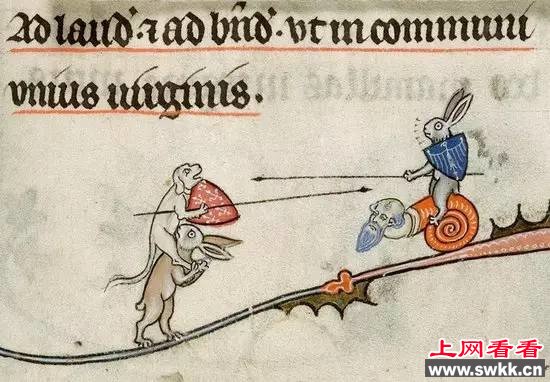 Ad laud'. ⁊ ad bn̄d'. vt in communi
vnius uirginis.
上网看看
www.swkk.cn